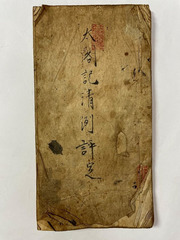 太閤記清洌評定